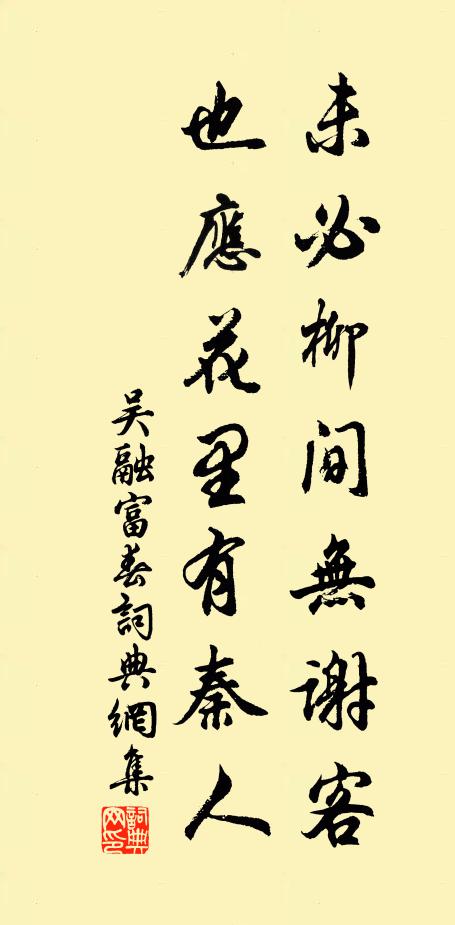 未必柳間無謝客
也應花里有秦人
吴融富春詞典網集
詞典網印